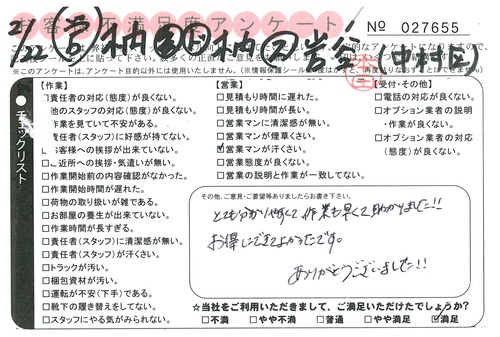 お客さま不満足度アンケート
No 027655
2/22
※このアンケートは、アンケート目的以外には使用いたしません。
チェックリスト
【作業】
責任者の対応(態度)が良くない。
他のスタッフの対応(態度)が良くない。
作業を見ていて不安がある。
責任者(スタッフ)に好感が持てない。
お客様への挨拶が出来ていない。
ご近所への挨拶・気遣いが無い。
□作業開始前の内容確認がなかった。
□作業開始時間が遅れた。
□荷物の取り扱いが雑である。
□お部屋の養生が出来ていない。
□作業時間が長すぎる。
□責任者(スタッフ)に清潔感が無い。
□責任者(スタッフ)が汗くさい。
□トラックが汚い。
□梱包資材が汚い。
□運転が不安(下手)である。
□靴下の履き替えをしてない。
□スタッフにやる気がみられない。
【営業】
□見積もり時間に遅れた。
□見積もり時間が長い。
□営業マンに清潔感が無い。
□営業マンが煙草くさい。
営業マンが汗くさい。
□営業態度が良くない。
□営業の説明と作業が一致してない。
【受付・その他】
□電話の対応が良くない。
□オプション業者の説明
・作業が良くない。
□オプション業者の対応
(態度)が良くない。
(中村区)
その他、ご意見・ご要望等ありましたらお書き下さい。
とても分かりやすくて作業も早くて助かりました!!
お得にできてよかったです。
ありがとうございました!!
☆当社をご利用いただきまして、ご満足いただけたでしょうか?
□不満 □やや不満 □普通 □やや満足 ☑満足